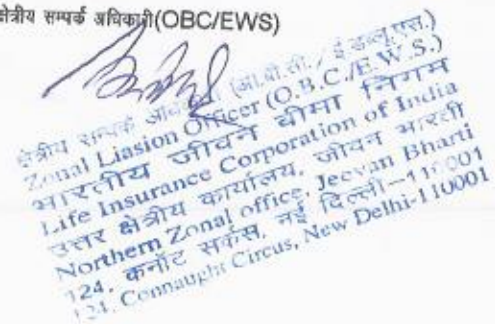 क्षेत्रीय सम्पर्क अधिकारी(OBC/EWS)
क्षेत्रीय सम्पर्क (ओ.बी.सी. / ई.डब्लू.एस.)
Zonal Liasion Officer (O.B.C./E.W.S.)
भारतीय जीवन बीमा निगम
Life Insurance Corporation of India
उत्तर क्षेत्रीय कार्यालय, जीवन भारती
Northern Zonal office, Jeevan Bharti
124, कनॉट सर्कस, नई दिल्ली-110001
124, Connaught Circus, New Delhi-110001